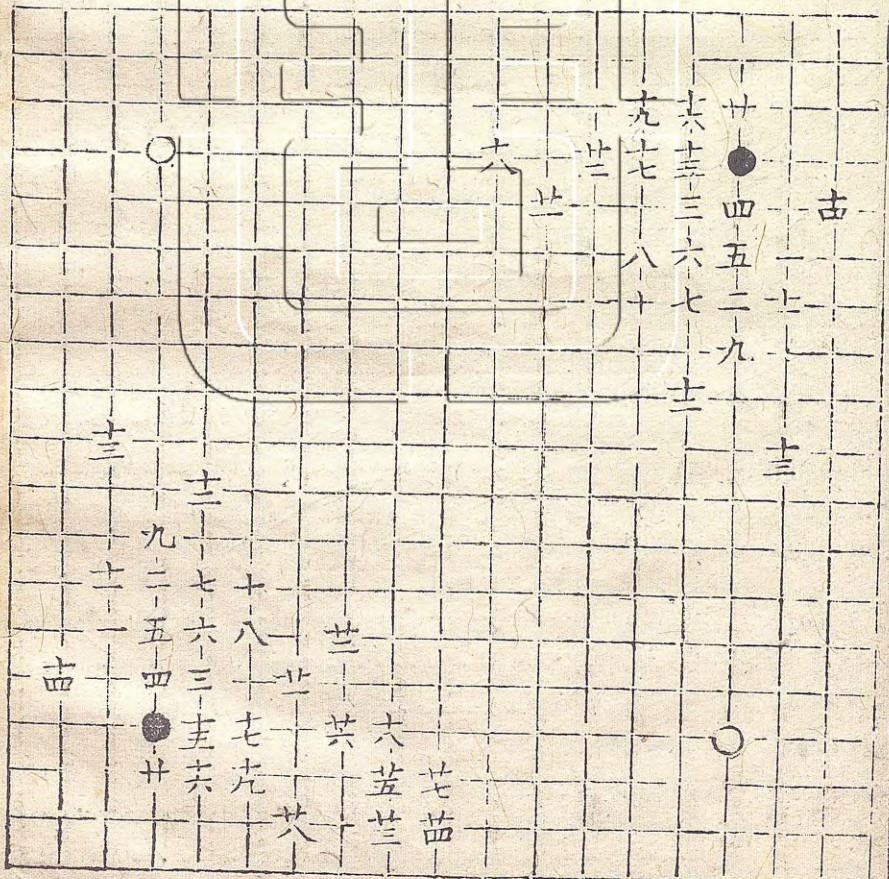 十九 十六 廿
十八 廿二 十七 十五
廿一 三 四 十四
八 六 五 一
十 七 二 十一
九
十二
十三 十三
十二
九
十一 二 七 十
一 五 六 八 廿二
十四 四 三 廿一
十五 十七 廿六 十八
廿 十六 十九 廿五 廿七
廿八 廿三 廿四